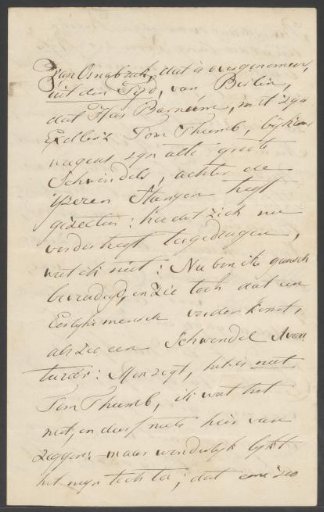 Van Osnabrück, dat is overgenomen,
uit den Tijd, van Berlin,
dat Har Barnum, met zijn
Tom Thumb,
wegens zijn alte groote
Schwindels, achter de
ijzeren Stangen heeft
gezeten; hoe dat zich nu
verder heeft toegedragen,
weet ik niet: Nu ben ik gansch
bevredigt, en zie toch dat een
Eerlijke mensch verder komt,
als zoo een Schwindel Aven
turier: Men zegt, het is niet
Tom Thumb, ik wat het
niet, en durf niets hier van
zeggen maar wonderlijk lijkt
het mijn toch toe, dat zoo